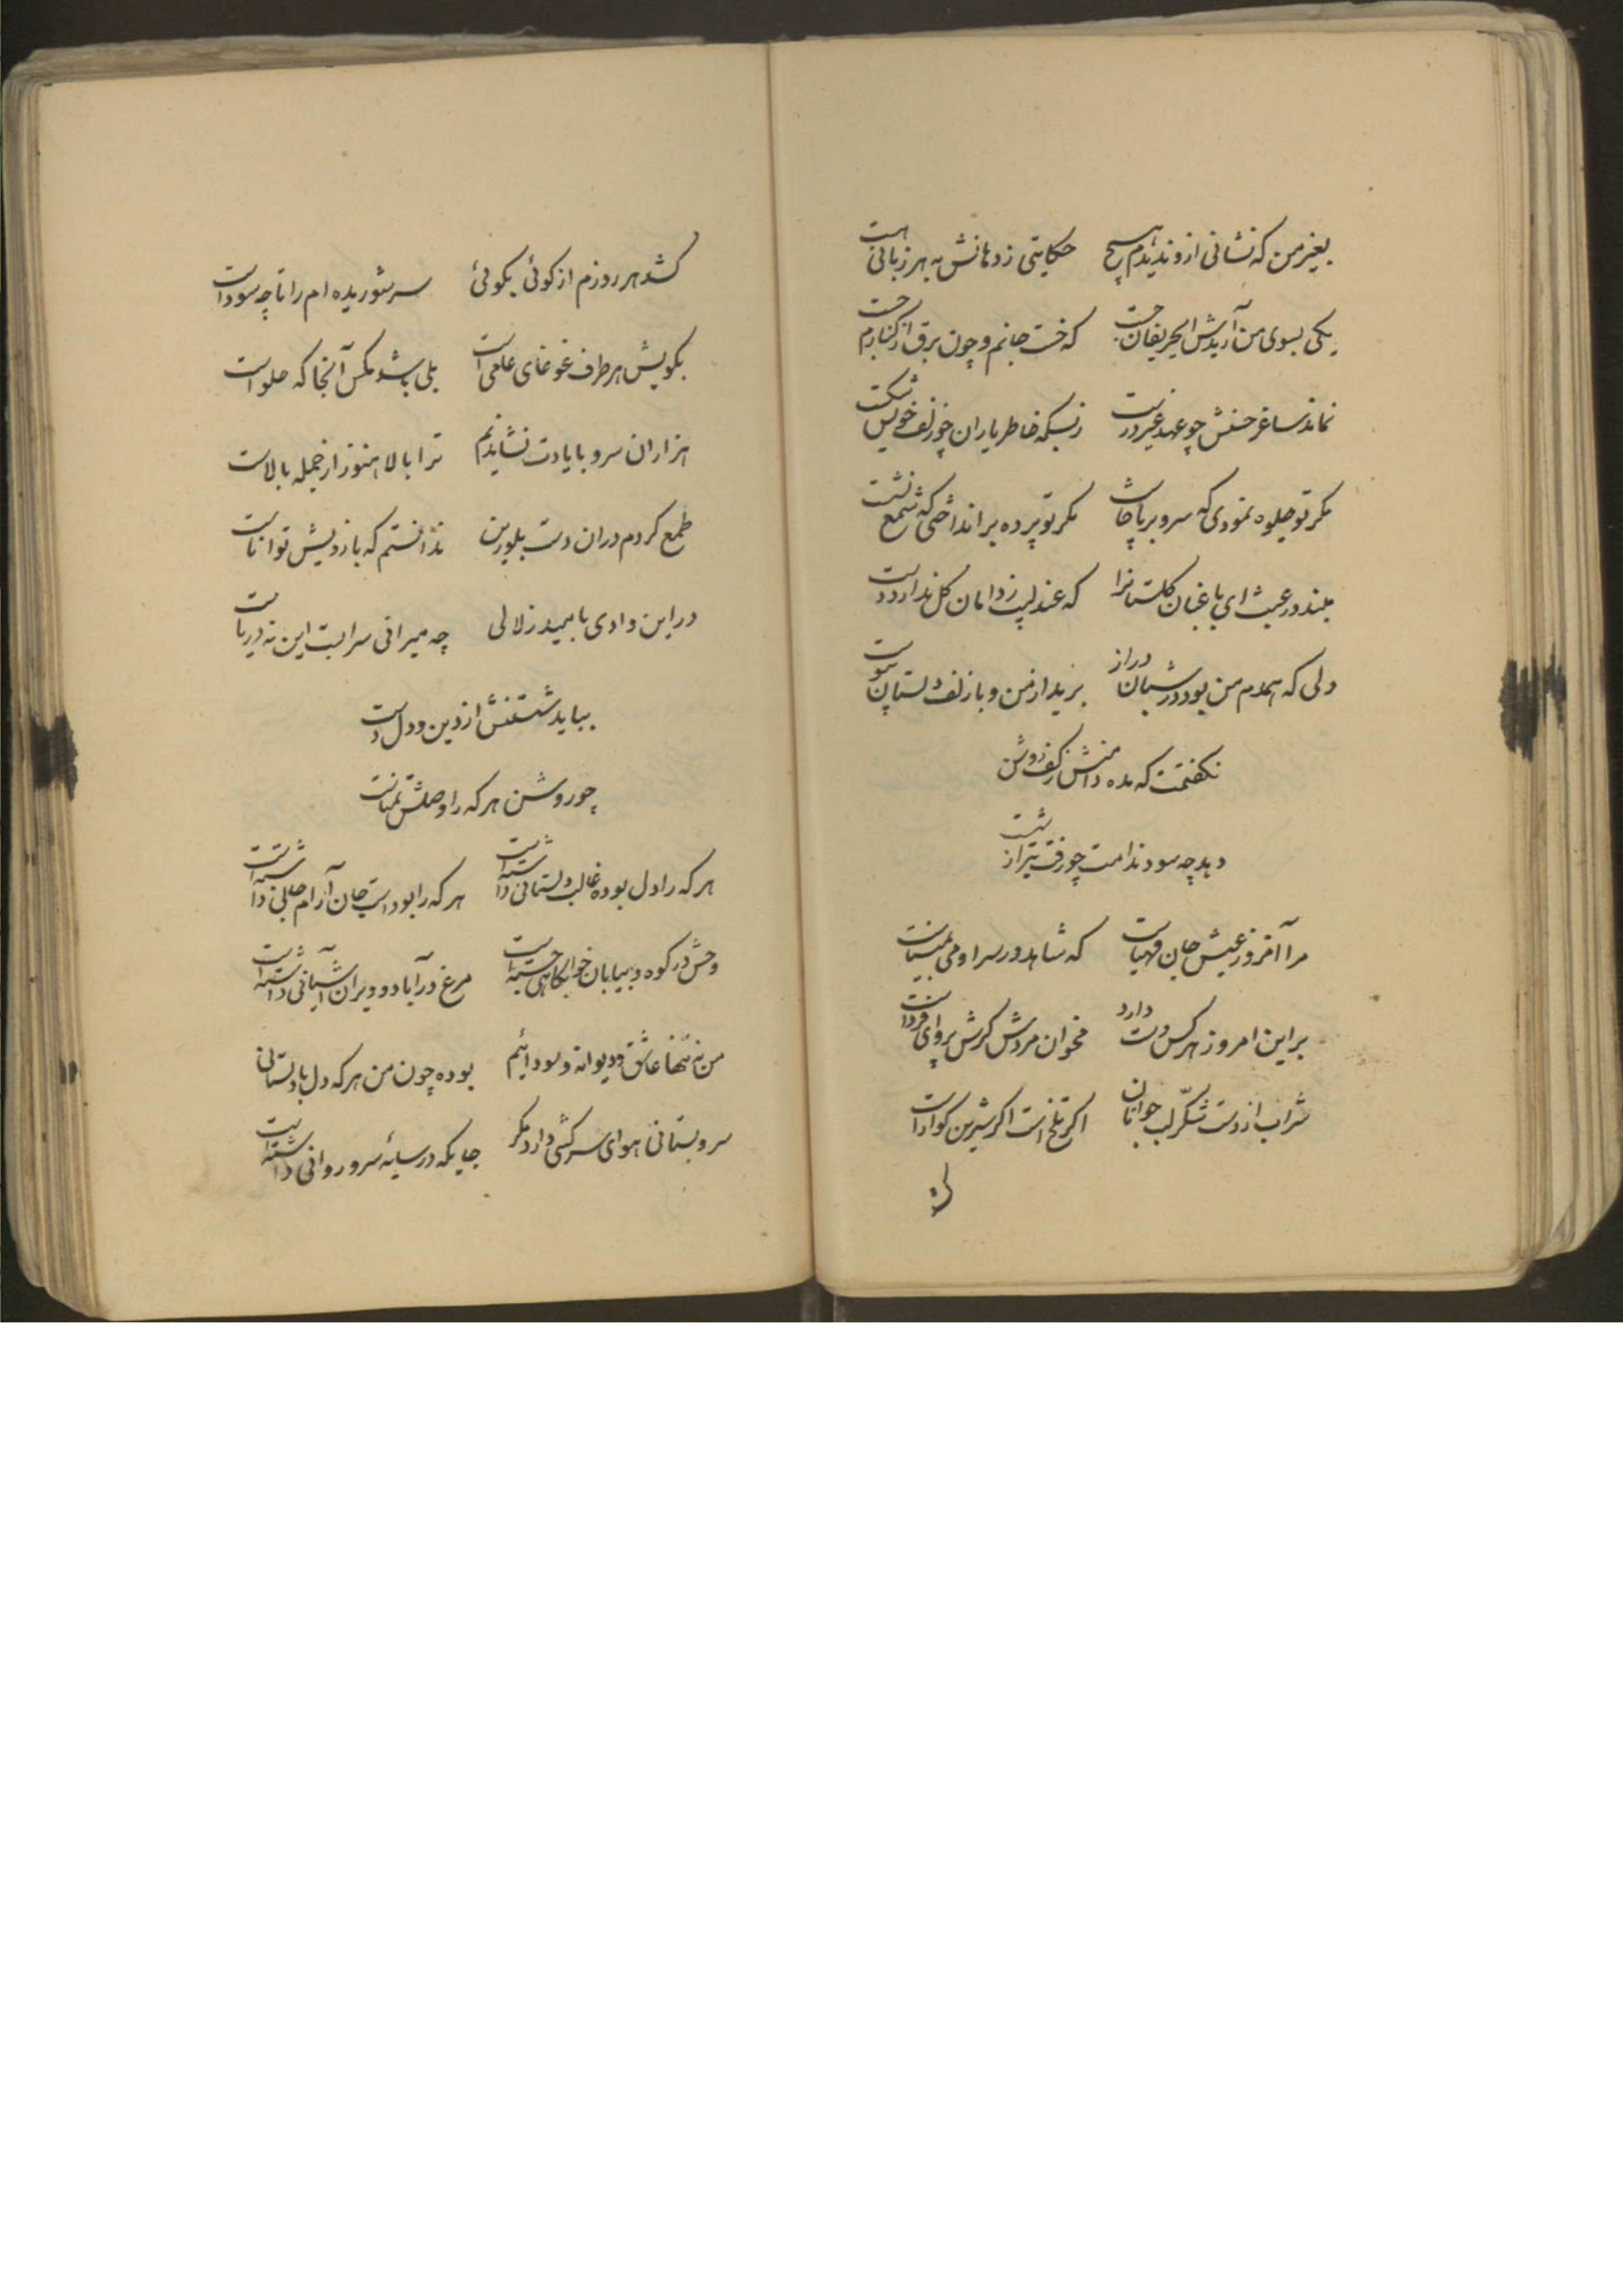 بغیر من که نشانی ازو ندیدم هیچ حکایتی ز دهانش به هر زبانی هست
یکی بسوی من آریدش ای حریفان چست که خست جانم و چون برق از کنارم جست
نماند ساغر حسنش چو عهد غیر درست ز بسکه خاطر یاران چو زلف خویش شکست
مکر تو جلوه نمودی که سرو برپا خاست مکر تو پرده برانداختی که شمع نشست
مبند در عبث ای باغبان کلستانرا که عندلیب ز دامان کل ندارد دست
دلی که همدم من بود در شبان دراز برید از من و با زلف دلستان پیوست
نکفتمت که مده دامنش ز کف روشن
دهد چه سود ندامت چو رفت تیر از شست
مرا امروز عیش جان مهیاست که شاهد در سرا و می بمیناست
براین امروز هر کس دست دارد مخوان مردش کرش پروای فرداست
شراب از دست شکّر لب جوانان اکر تلخ است اکر شیرین کواراست
کشد هر روزم از کوئی بکوئی سر شوریده ام را تا چه سوداست
بکویش هر طرف غوغای علمی است بلی باشد مکس آنجا که حلواست
هزاران سرو با یادت نشاندیم ترا بالا هنوز از جمله بالاست
طمع کردم دران دست بلورین ندانستم که بازویش تواناست
در این وادی بامید زلالی چه میرانی سرابست این نه دریاست
بباید شستنش از دین و دل دست
چو روشن هر که را وصلش تمناست
هر که را دل بوده غالب دلستانی داشته است هر که را بوداست جان آرام جانی داشته است
وحش در کوه و بیابان خوابکاهی جسته است مرغ در آباد و ویران آشیانی داشته است
من نه تنها عاشق و دیوانه و سودائیم بوده چون من هر که دل با دلستانی
سرو بستانی هوای سرکشی دارد مکر جایکه در سایهٔ سرو روانی داشته است